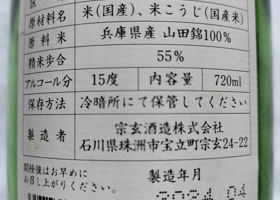 原材料名 米(国産)、米こうじ(国産米)
原料米 兵庫県産 山田錦100%
精米歩合 55%
アルコール分 15度 内容量 720ml
保存方法 冷暗所にて保管してください
製造者 宗玄酒造株式会社
石川県珠洲市宝立町宗玄24-22
開栓後はお早めに
お召し上がりください。
製造年月
2024.04